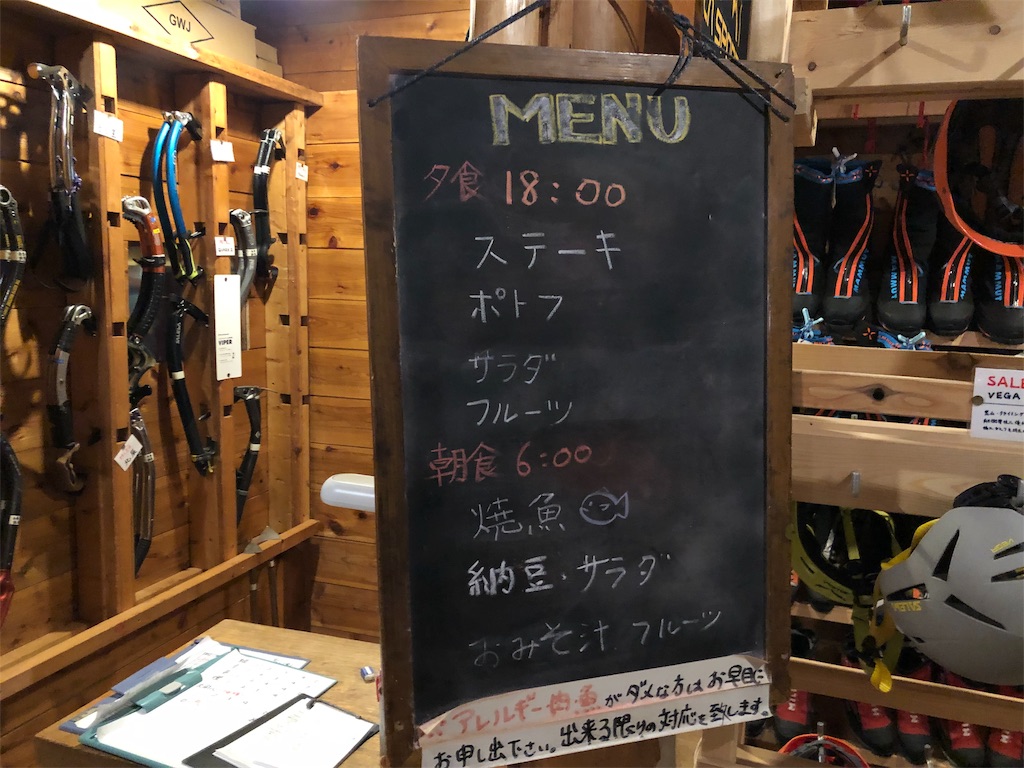 GWJ
MENU
夕食 18:00
ステーキ
ポトフ
サラダ
フルーツ
朝食 6:00
焼魚
納豆・サラダ
おみそ汁 フルーツ
アレルギー肉・魚がダメな方はお早目に
お申し出下さい。出来る限りの対応を致します。
VIPER
MAMMUT
SALE
VEGA
SALEWA